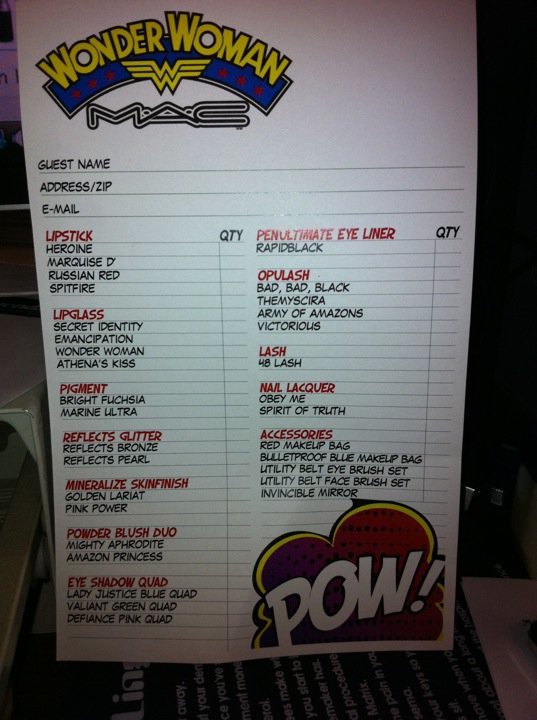 WONDER WOMAN
MAC
GUEST NAME
ADDRESS/ZIP
E-MAIL
LIPSTICK QTY
HEROINE
MARQUISE D'
RUSSIAN RED
SPITFIRE
LIPGLASS
SECRET IDENTITY
EMANCIPATION
WONDER WOMAN
ATHENA'S KISS
PIGMENT
BRIGHT FUCHSIA
MARINE ULTRA
REFLECTS GLITTER
REFLECTS BRONZE
REFLECTS PEARL
MINERALIZE SKINFINISH
GOLDEN LARIAT
PINK POWER
POWDER BLUSH DUO
MIGHTY APHRODITE
AMAZON PRINCESS
EYE SHADOW QUAD
LADY JUSTICE BLUE QUAD
VALIANT GREEN QUAD
DEFIANCE PINK QUAD
PENULTIMATE EYE LINER QTY
RAPIDBLACK
OPULASH
BAD, BAD, BLACK
THEMYSCIRA
ARMY OF AMAZONS
VICTORIOUS
LASH
48 LASH
NAIL LACQUER
OBEY ME
SPIRIT OF TRUTH
ACCESSORIES
RED MAKEUP BAG
BULLETPROOF BLUE MAKEUP BAG
UTILITY BELT EYE BRUSH SET
UTILITY BELT FACE BRUSH SET
INVINCIBLE MIRROR
POW!